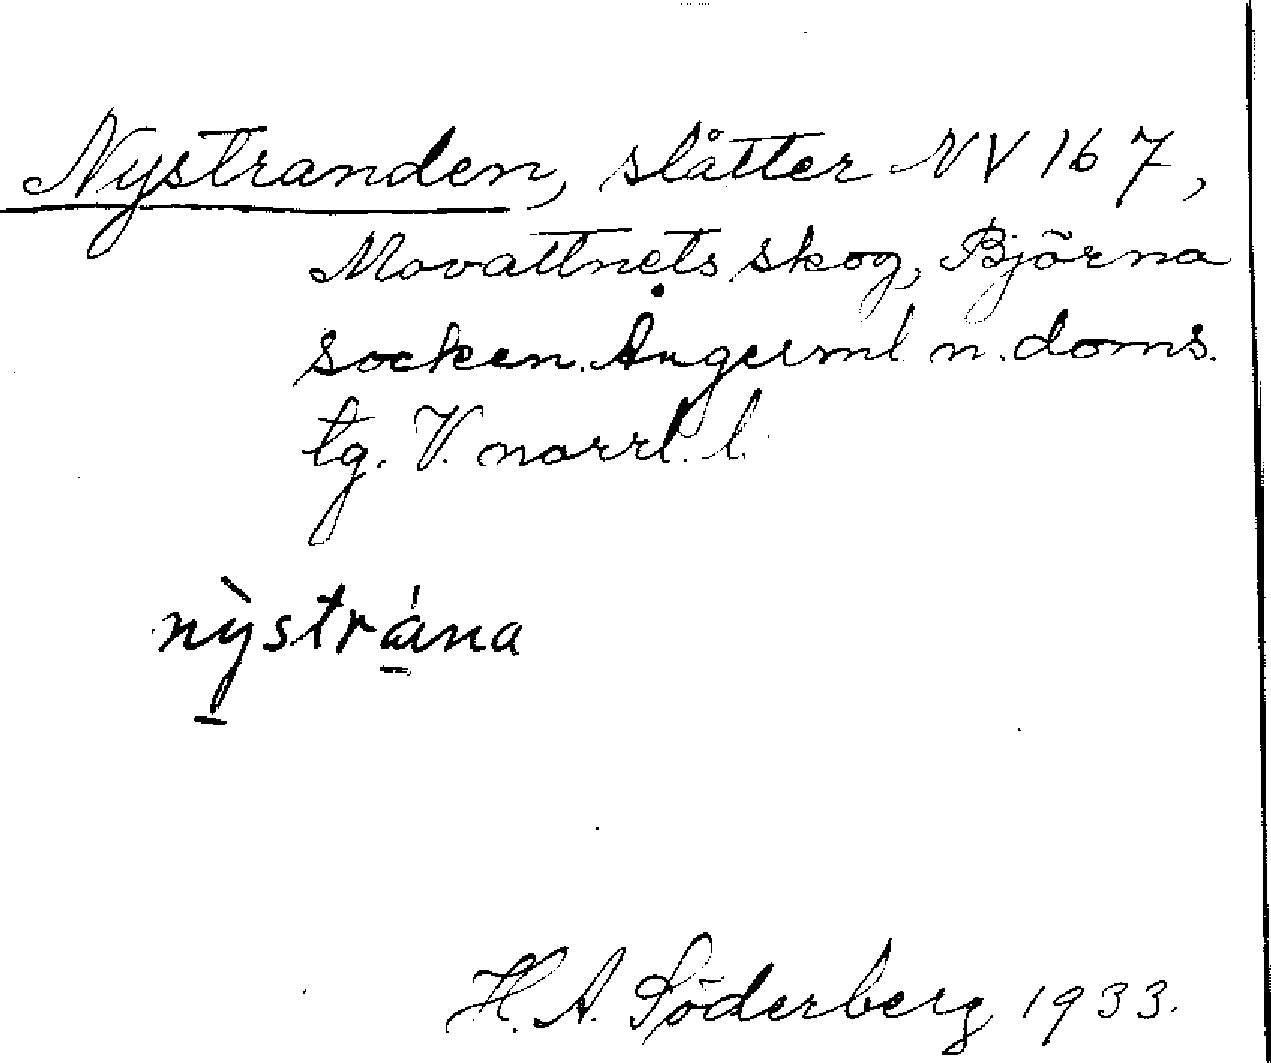 Nystranden, slåtter NV 167,
Movattnets skog, Björna
socken. Ångerml n. doms.
tg. V. norrl. l.
nỳstrána
H. A. Söderberg 1933.